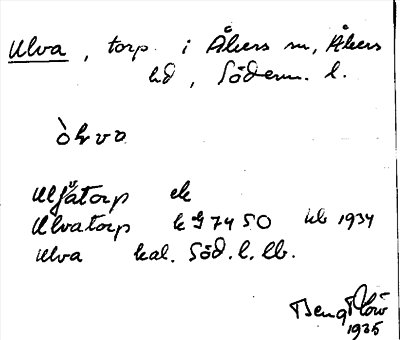 Ulva, torp i Åkers sn, Åkers
hd, Söderm. l.
òlva
Ulfåtorp ek
Ulvatorp k 7450 Ub 1934
Ulva kal. Söd. l. lb.
1935